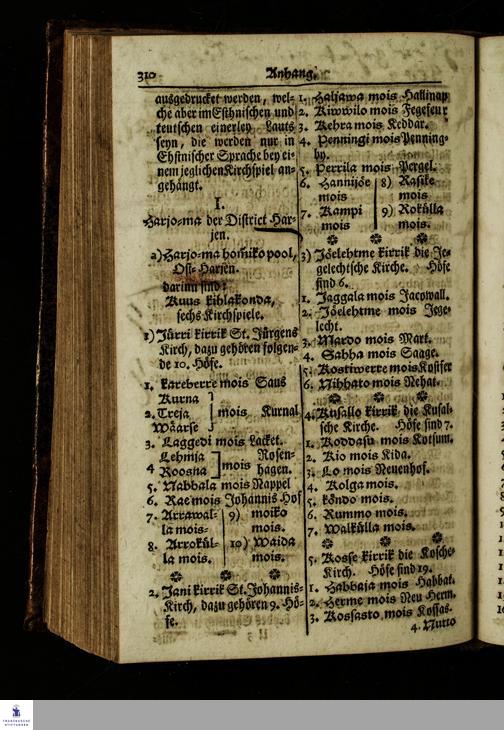 310 Anhang.
ausgedrucket werden, wel-
che aber im Esthnischen und
teutschen einerley Lauts
seyn, die werden nur in
Ehstnischer Sprache bey ei-
nem jeglichen Kirchspiel an-
gehängt.
I.
Harjo-ma der District Har-
jen.
a) Harjo-ma hom̃iko pool,
Ost-Harjen.
darinn sind:
Kuus kihlakonda,
sechs Kirchspiele.
1) Jürri kirrik St. Jürgens
Kirch, dazu gehören folgen-
de 10. Höfe.
1. kareberre mois Saus
Kurna
2. Treja mois Kurnal
Wäarse
3. Laggedi mois Lacket.
Lehmja Rosen-
4 Roosna mois hagen.
5. Nabbala mois Nappel
6. Rae mois Johannis Hof
7. Arrawal- 9) moiko
la mois- mois.
8. Arrokül- 10) Waida
la mois. mois.
2. Jani kirrik St. Johannis-
Kirch, dazu gehören 9. Hö-
fe.
1. Haljawa mois Hallinap
2. Kiwwilo mois Fegefeur
3. Kehra mois Keddar.
4. Penningi mois Penning-
by.
5. Perrila mois Pergel.
6. Hannijöe 8) Rasike
mois mois
7. Kampi 9) Rokülla
mois mois.
3) Jöelehtme kirrik die Je-
gelechtsche Kirche. Höfe
sind 6.
1. Jaggala mois Jacowall.
2. Jöelehtme mois Jege-
lecht.
3. Mardo mois Mart.
4. Sahha mois Saage.
5. Kostiwerre mois Kostfer
6. Nihhato mois Nehat.
4. Kusallo kirrik die Kusal-
sche Kirche. Höfe sind 7.
1. Koddasu mois Kotsum.
2. Kio mois Kida.
3. Lo mois Neuenhof.
4. Kolga mois.
5. köndo mois.
6. Rummo mois.
7. Walkülla mois.
5. Kosse kirrik die Kosche-
Kirch. Höfe sind 19.
1. Habbaja mois Habbat.
2. Herme mois Neu Herm.
3. Kossasto mois Kossas-
4. Nutto
FRANCKESCHE
STIFTUNGEN